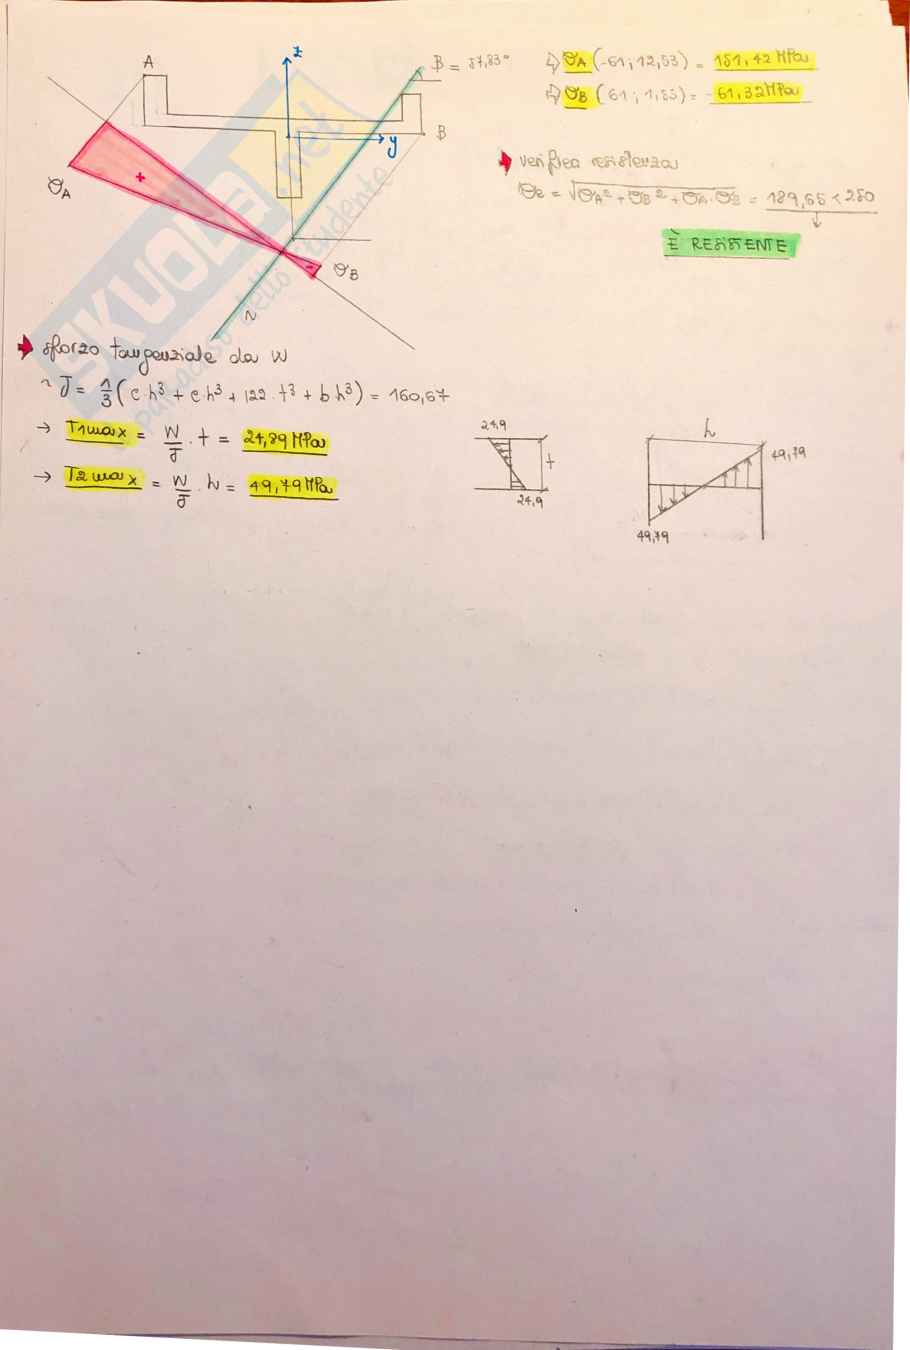 z
A
B = 57,83°
B
y
+
σA
-
σB
n
SKUOLA.net
paradiso dello studente
⇨ σA (-61 ; 12,53) = 151,42 MPa
⇨ σB (61 ; 1,53) = -61,32 MPa
→ verifica resistenza
σe = √σA² + σB² + σA · σB = 189,65 < 250
↓
È RESISTENTE
→ sforzo tangenziale da W
~ J = 1/3 (c·h³ + c·h³ + 122·t³ + b·h³) = 160,67
→ T1max = W/J · t = 24,89 MPa
→ T2max = W/J · h = 49,79 MPa
24,9
t
24,9
h
49,79
49,79